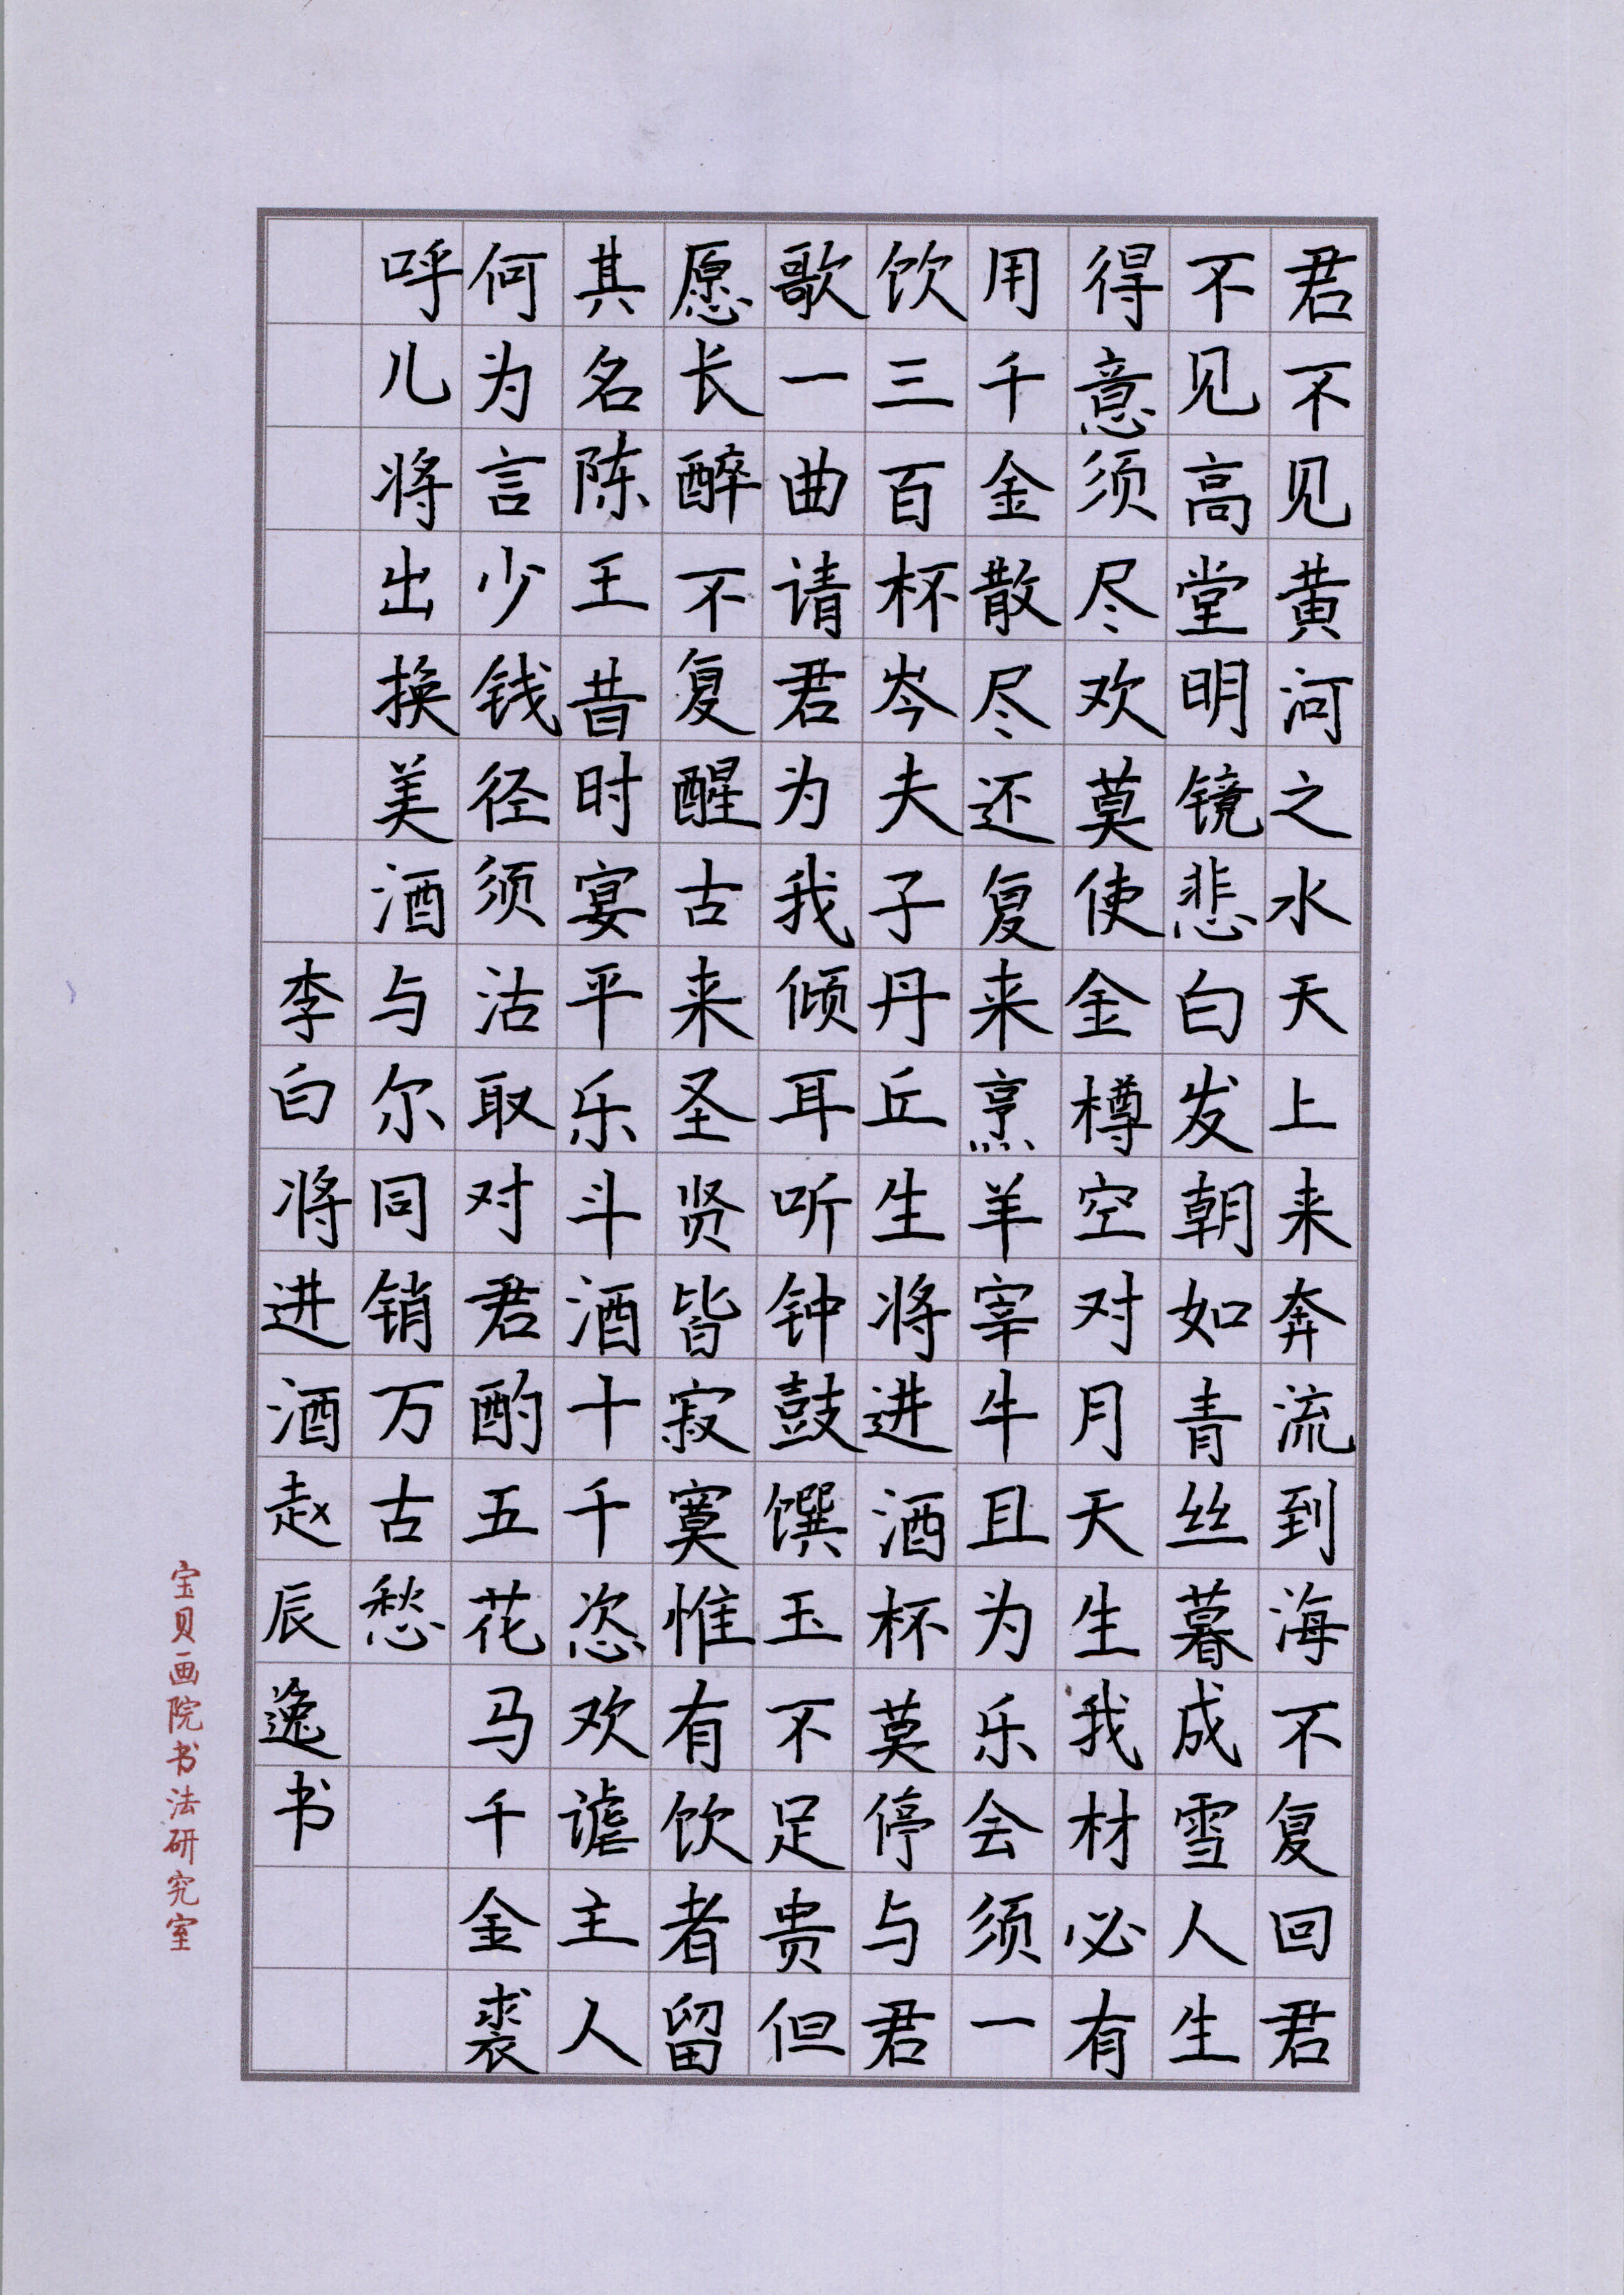 君不见黄河之水天上来奔流到海不复回君
不见高堂明镜悲白发朝如青丝暮成雪人生
得意须尽欢莫使金樽空对月天生我材必有
用千金散尽还复来烹羊宰牛且为乐会须一
饮三百杯岑夫子丹丘生将进酒杯莫停与君
歌一曲请君为我倾耳听钟鼓馔玉不足贵但
愿长醉不复醒古来圣贤皆寂寞惟有饮者留
其名陈王昔时宴平乐斗酒十千恣欢谑主人
何为言少钱径须沽取对君酌五花马千金裘
呼儿将出换美酒与尔同销万古愁
李白将进酒赵辰逸书
宝贝画院书法研究室